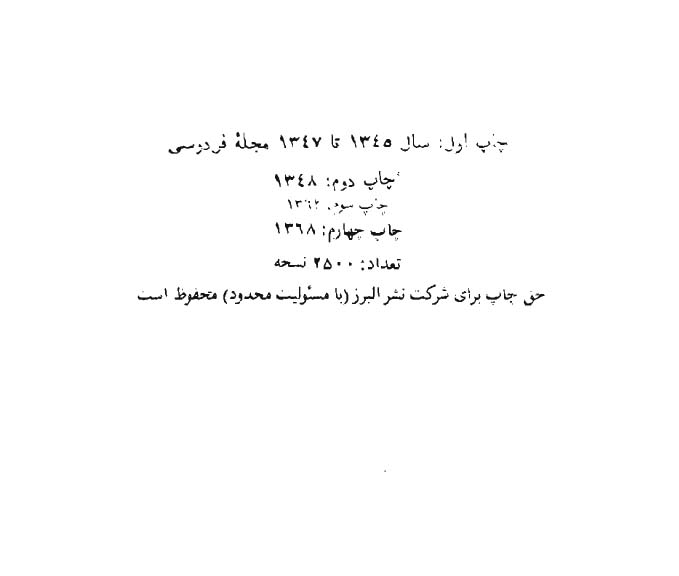 چاپ اول: سال ۱۳٤٥ تا ۱۳٤۷ مجلهٔ فردوسی
چاپ دوم: ۱۳٤۸
چاپ سوم:
چاپ چهارم: ۱۳٦۸
تعداد: ۲۵۰۰ نسخه
حق چاپ برای شرکت نشر البرز (با مسئولیت محدود) محفوظ است